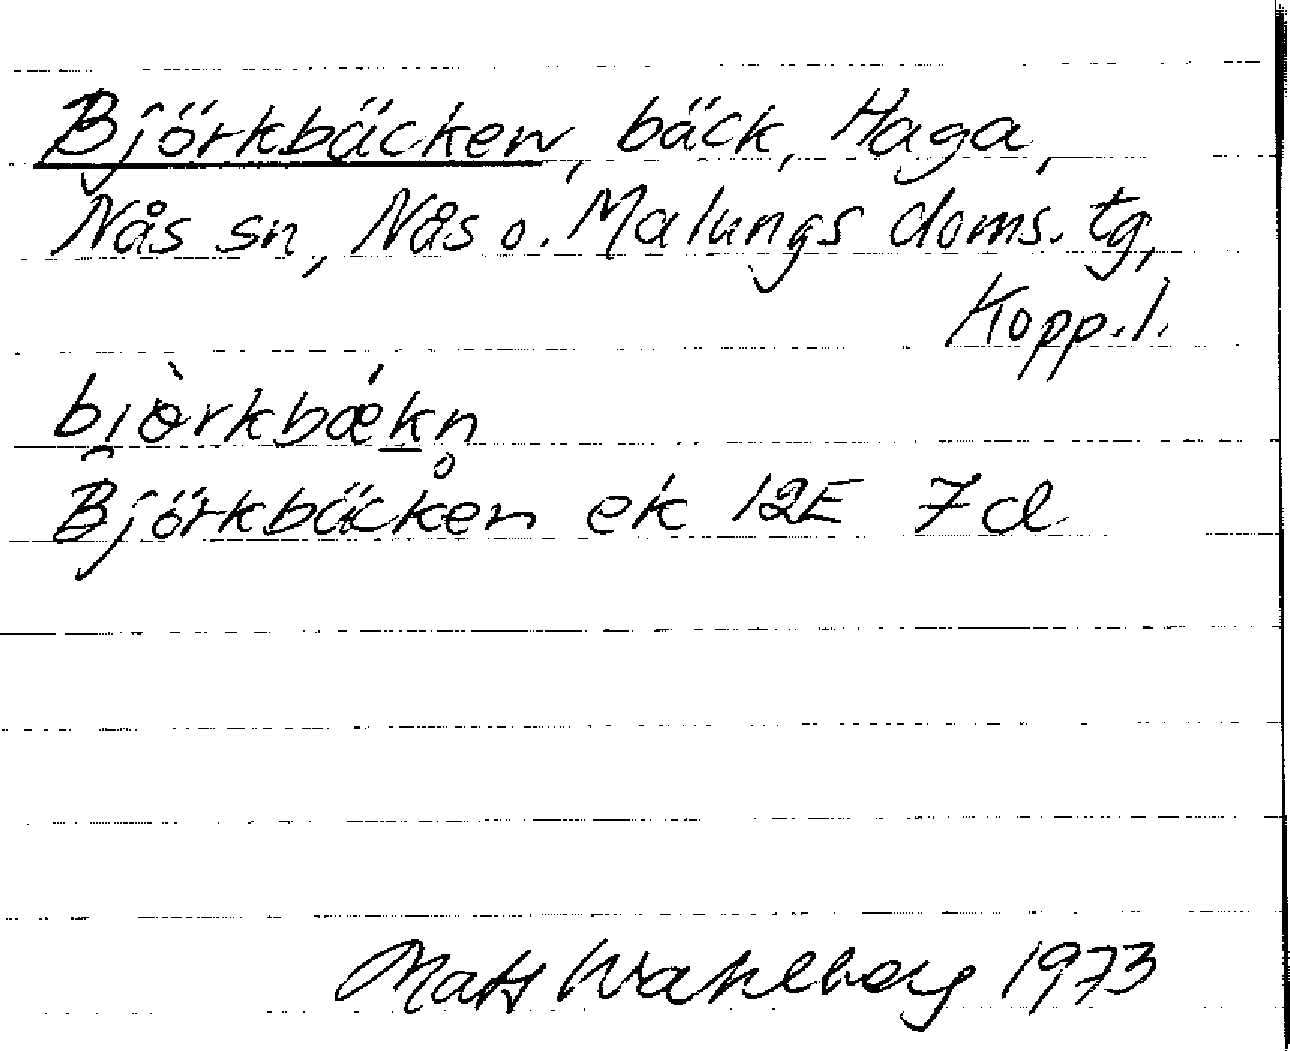 Björkbäcken, bäck, Haga,
Nås sn, Nås o. Malungs doms. tg,
Kopp. l.
bi̯ɵ̀rkbǽk̲n̥
Björkbäcken ek 12E 7d
Mats Wahlberg 1973